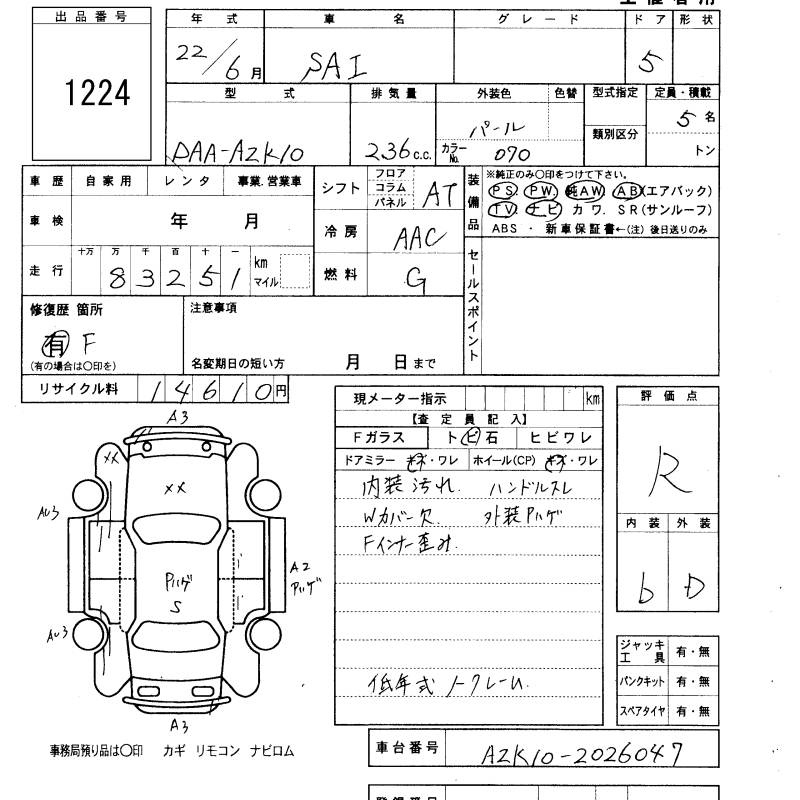 出品番号
1224
年式 車名 グレード ドア 形状
22/6月 SAI 5
型式 排気量 外装色 色替 型式指定 定員・積載
DAA-AZK10 236 c.c. パール カラーNo. 070 類別区分 5名 トン
車歴 自家用 レンタ 事業.営業車
シフト フロア コラム パネル AT
装備品
※純正のみ〇印をつけて下さい。
PS PW 純AW AB(エアバック)
TV ナビ カワ. SR(サンルーフ)
ABS ・ 新車保証書←(注) 後日送りのみ
車検 年 月
冷房 AAC
走行 十万 万 千 百 十 一
83251 km マイル
燃料 G
セールスポイント
修復歴 箇所
有 F
(有の場合は〇印を)
注意事項
名変期日の短い方 月 日まで
リサイクル料 14610円
現メーター指示 km
【査定員記入】
Fガラス トビ石 ヒビワレ
ドアミラー キズ・ワレ ホイール(CP) キズ・ワレ
内装汚れ. ハンドルスレ
Wカバー欠 外装Pハゲ
Fインナー歪み.
低年式 ノークレーム.
評価点
R
内装 外装
b D
A3
XX
XX
AU3
Pハゲ
S
A2
Pハゲ
AU3
A3
ジャッキ工具 有・無
パンクキット 有・無
スペアタイヤ 有・無
事務局預り品は〇印 カギ リモコン ナビロム
車台番号 AZK10-2026047